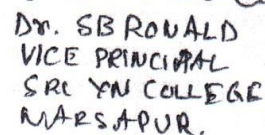 Dr. SB RONALD
VICE PRINCIPAL
SRI YN COLLEGE
NARSAPUR.